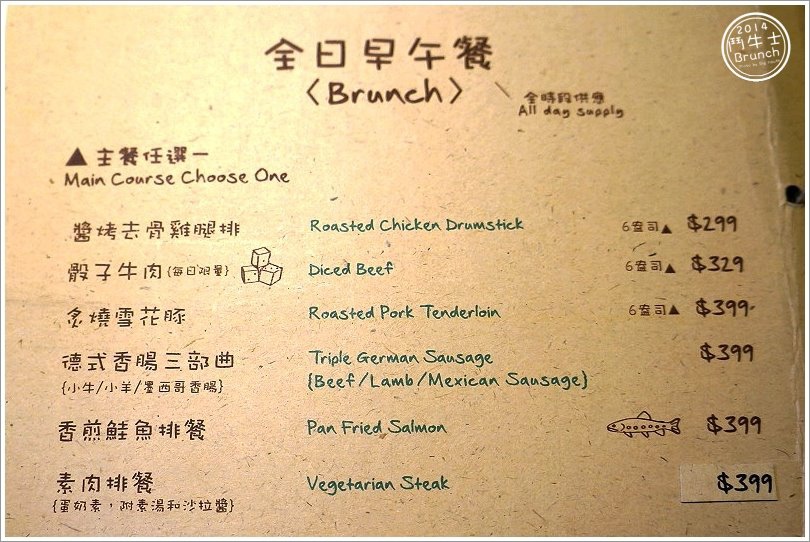 2014
鬥牛士
Brunch
全日早午餐
〈Brunch〉
全時段供應
All day supply
▲主餐任選一
Main Course Choose One
醬烤去骨雞腿排 Roasted Chicken Drumstick 6盎司▲ $299
骰子牛肉{每日限量} Diced Beef 6盎司▲ $329
炙燒雪花豚 Roasted Pork Tenderloin 6盎司▲ $399
德式香腸三部曲 Triple German Sausage $399
{小牛/小羊/墨西哥香腸} {Beef/Lamb/Mexican Sausage}
香煎鮭魚排餐 Pan Fried Salmon $399
素肉排餐 Vegetarian Steak $399
{蛋奶素，附素湯和沙拉醬}